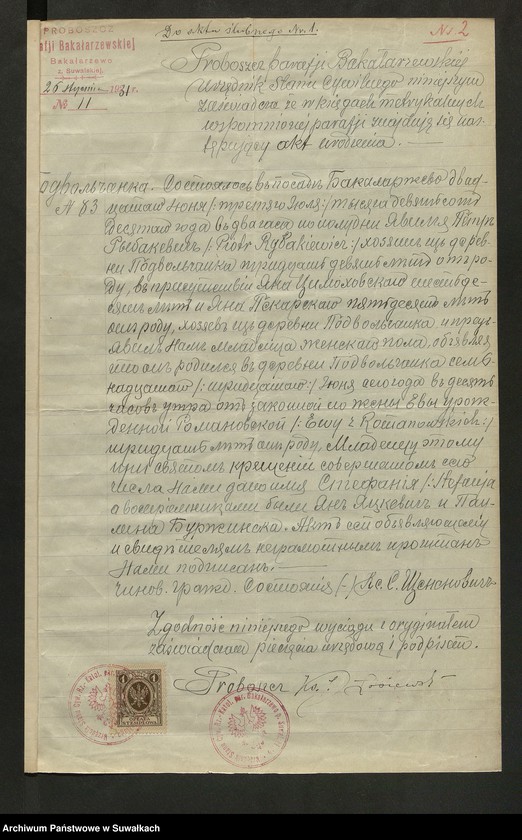 PROBOSZCZ
Parafji Bakałarzewskiej
w Bakałarzewo
z. Suwalskiej.
26 stycznia 1931 r.
№ 11
Do aktu ślubnego Nr. 1.
No. 2
Proboszcz parafji Bakałarzewskiej
urzędnik Stanu Cywilnego niniejszym
zaświadcza że w księgach metrykalnych
wspomnionej parafji znajduje się nas-
tępujący akt urodzenia. —
Подвольчанка. Состоялось въ посадѣ Бакаларжево двад-
№ 83
цатаго Іюня /: третяго Іюля :/ тысяча девятьсотъ
десятаго года въ два часа по полудни. Явился Піотръ
Рыбакевичъ /: Piotr Rybakiewicz :/ хозяинъ изъ дерев-
ни Подвольчанка тридцать девять лѣтъ отъ ро-
ду, въ присутствіи Яна Цимоховскаго шестьде-
сятъ лѣтъ и Яна Пекарскаго пятьдесятъ лѣтъ
отъ роду, хозяевъ изъ деревни Подвольчанка и предъ-
явилъ Намъ младенца женскаго пола, объявляя
что онъ родился въ деревни Подвольчанка семь-
надцатаго /: тридцатаго :/ Іюня сего года въ десять
часовъ утра отъ законной его жены Евы урож-
денной Романовской /: Ewy z Romanowskich :/
тридцать лѣтъ отъ роду. Младенцу этому
при святомъ крещеніи совершонномъ сего
числа Нами дано имя Стефанія /: Stefanja
а воспріемниками были Янъ Яцкевичъ и Пау-
лина Буржинска. Актъ сей объявляющему
и свидѣтелямъ неграмотнымъ прочитанъ
Нами подписанъ. —
Чинов. Гражд. Состоянія (-) Кс. С.
Zgodność niniejszego wyciągu z oryginałem
zaświadczam pieczęcią urzędową i podpisem.
Proboszcz Ks.
1
OPŁATA
STEMPLOWA
Archiwum Państwowe w Suwałkach